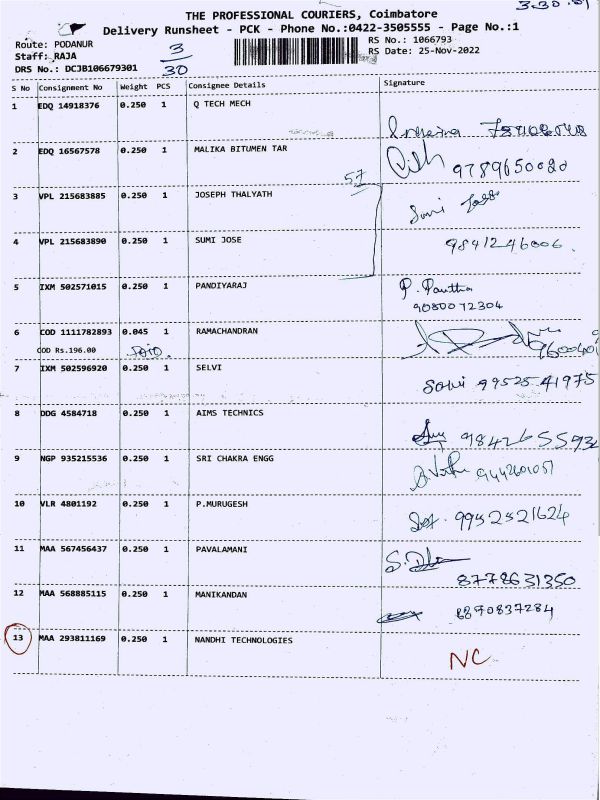 3.30.
THE PROFESSIONAL COURIERS, Coimbatore
Delivery Runsheet - PCK - Phone No.:0422-3505555 - Page No.:1
Route: PODANUR
Staff: RAJA
DRS No.: DCJB106679301
3
30
RS No.: 1066793
RS Date: 25-Nov-2022
S No Consignment No Weight PCS Consignee Details Signature
1 EDQ 14918376 0.250 1 Q TECH MECH
2 EDQ 16567578 0.250 1 MALIKA BITUMEN TAR 9789650020
57
3 VPL 215683885 0.250 1 JOSEPH THALYATH Sumi Jose
4 VPL 215683890 0.250 1 SUMI JOSE 9841246006.
5 IXM 502571015 0.250 1 PANDIYARAJ P. Pavithra
9080072304
6 COD 1111782893 0.045 1 RAMACHANDRAN
COD Rs.196.00 960040
7 IXM 502596920 0.250 1 SELVI Selvi 9952541975
8 DDG 4584718 0.250 1 AIMS TECHNICS 984265593
9 NGP 935215536 0.250 1 SRI CHAKRA ENGG 9442601051
10 VLR 4801192 0.250 1 P.MURUGESH 9952521624
11 MAA 567456437 0.250 1 PAVALAMANI
8778631350
12 MAA 568885115 0.250 1 MANIKANDAN 8870837284
13 MAA 293811169 0.250 1 NANDHI TECHNOLOGIES NC